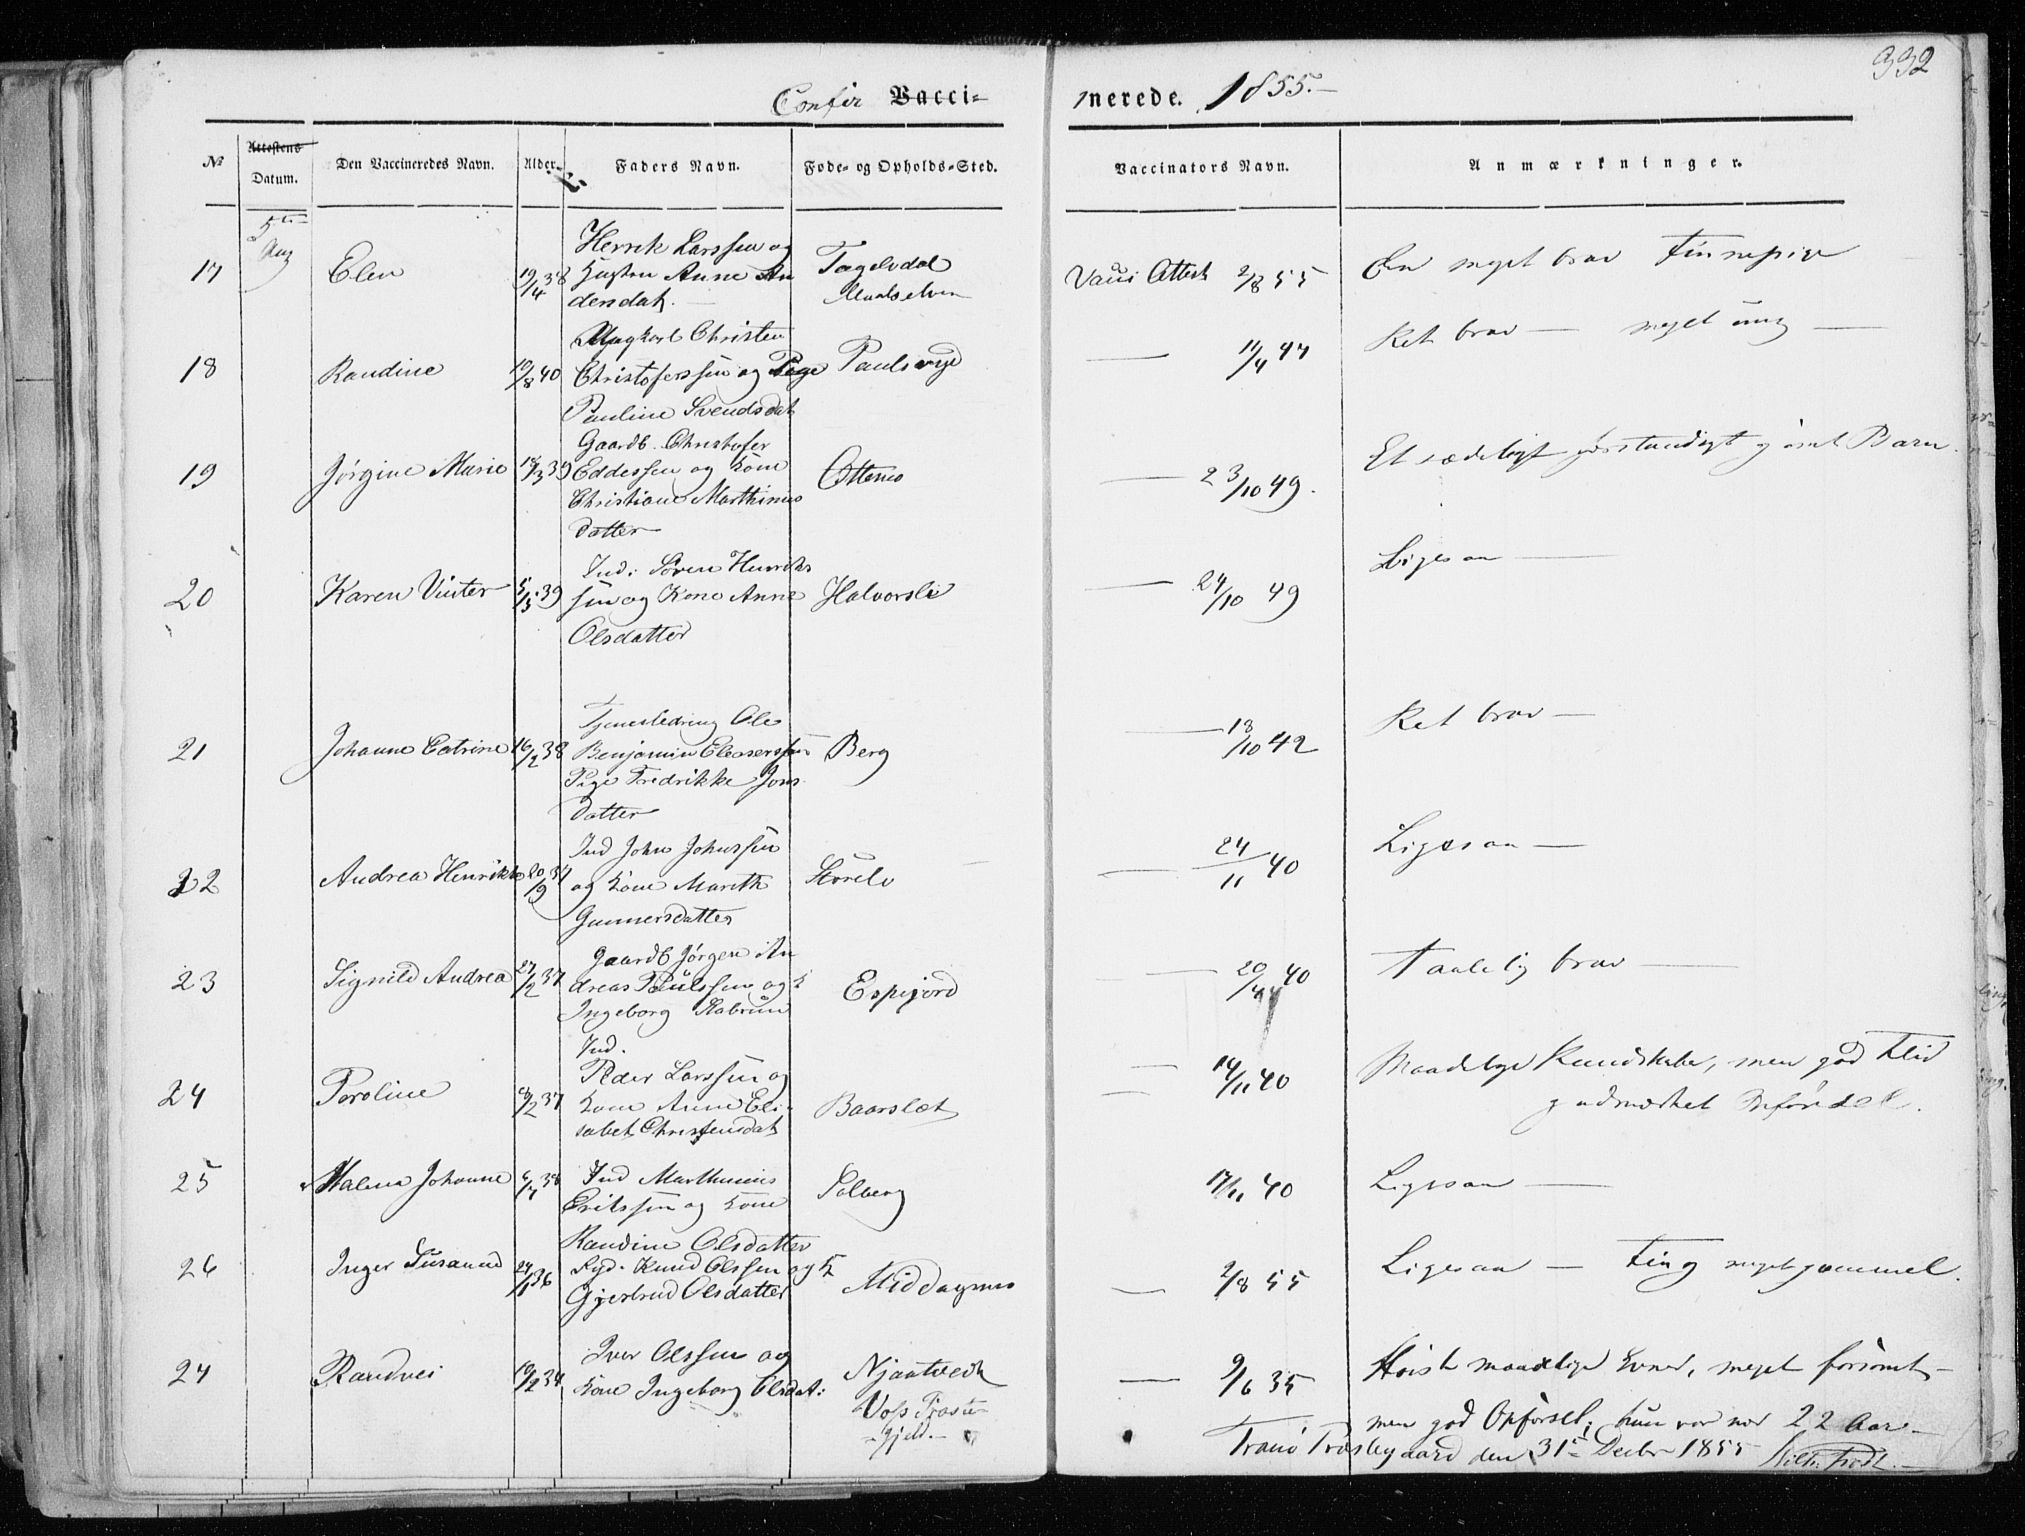 332
Confir Vacci-
nerede. 1855.-
№
Attestens
Datum.
Den Vaccineredes Navn.
Alder.
Faders Navn.
Føde- og Opholds-Sted.
Vaccinators Navn.
Anmærkninger.
5te
Aug
17 Elen 19/4 38
Henrik Larssen og
Hustru Anne An
densdat.
Tagelvdal
Maalselven
Attest 2/8 55
En meget brav Finnepige
18 Randine 10/8 40
Ungkarl Christen
Christoferssen og Pige
Pauline Svendsdat
Paulsryd
— 11/4 47
Ret brav — meget ung —
19 Jørgine Marie 18/3 39
Gaardb. Christofer
Eddessen og Kone
Christiane Marthinus
datter
Ottenes
— 23/10 49.
Et sædeligt forstandigt Barn.
20 Karen Vinter 5/5 39
Ind: Søren Henriks
sen og Kone Anne
Olsdatter
Halvorsli
— 24/10 49
Ligesaa —
21 Johanne Catrine 16/2 38
Ole
Benjamin
Pige Fredrikke Jons
datter
Berg
— 18/10 42
Ret brav —
22 Andrea Henrikke 20/9 37
Ind John Johnssen
og Kone Marith
Gunnersdatter
Storelv
— 24/11 40
Ligesaa —
23 Signild Andrea 27/2 37
Gaardb Jørgen An
dreas Paulssen og K
Ingeborg
Espejord
— 20/11 40
Taalelig brav —
24 Peroline 8/2 37
Ind.
Peder Larssen og
Kone Anne Eli-
sabet Christensdat
Baarslæt
— 14/11 40
Maadelige Kundskaber, men god Flid
25 Malena Johanne 6/7 38
Ind Marthinus
Erikssen og Kone
Randine Olsdatter
Solberg
17/11 40
Ligesaa —
26 Inger Susanna 24/1 36
Knud Olssen og K
Gjertrud Olsdatter
Middagsnes
— 2/8 55
Ligesaa — meget gammel.
27 Randvei 10/2 34
Iver Olssen og
Kone Ingeborg Olsdat:
Njaatvedt
Voss Præste
-gjeld.-
— 9/6 35
Høist maadelige Evner, meget forsømt-
men god Opførsel; hun var nær 22 Aar-
Tranø Præstegaard den 31te Decbr 1855